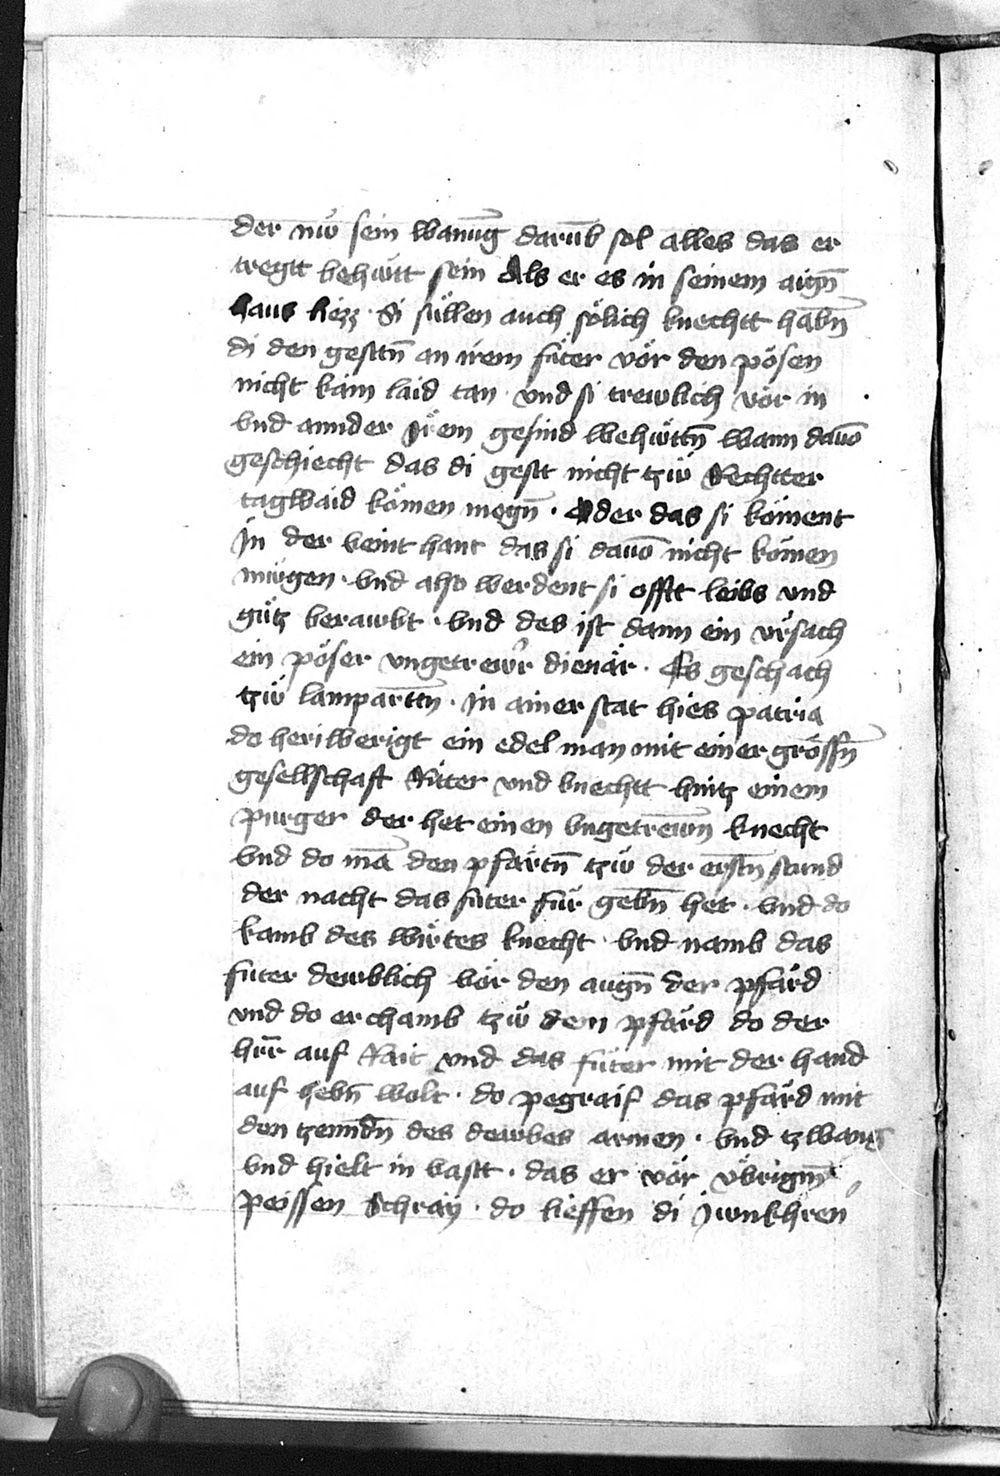 der nw̆ sein wanūg darūb sol alles das er
tregtt behütt sein Als er es in seinem aign̄
haus hiezz · Si süllen auch sölich knechtt habn̄
di den gesttn̄ an irem füter vör den pösen
nicht käm laid tan · vnd si trewlich vör in
vnd annder Irem gesind wehüttn̄ wann dauō
geschiecht das di gestt nicht tzw̆ Rechtter
tagwaid kömen megn̄ · Oder das si köment
In der veint hant das si dauō nicht kömen
mügen · vnd also werdent si offtt leibs vnd
gütz berawbt · vnd des ist dann ein vrsach
ein pöser vngetrewr̄ dienär · Es geschach
tzw̆ lampartn̄ · in ainer stat hies patria
do heriwerigt ein edel man mit einer grössn̄
gesellschaft Ritter vnd knechtt hintz einem
purger der het einen vngetrewn̄ knecht
vnd do mā den pfärtn̄ tzw̆ der erstn̄ stund
der nacht das füter für gebn̄ het · vnd do
kamb des wirtes knecht · vnd namb das
füter dewblich vör den augn̄ der pfärd
vnd do er chamb tzw̆ dem pfärd do der
her̄r auf Rait vnd das füter mit der hand
auf hebn̄ wolt · do pegraif das pfärd mit
den tzenndn̄ des dewbes armen · vnd tzwang
vnd hielt in vastt · das er vör vbrign̄
peissen Schray · do lieffen di Junkhren